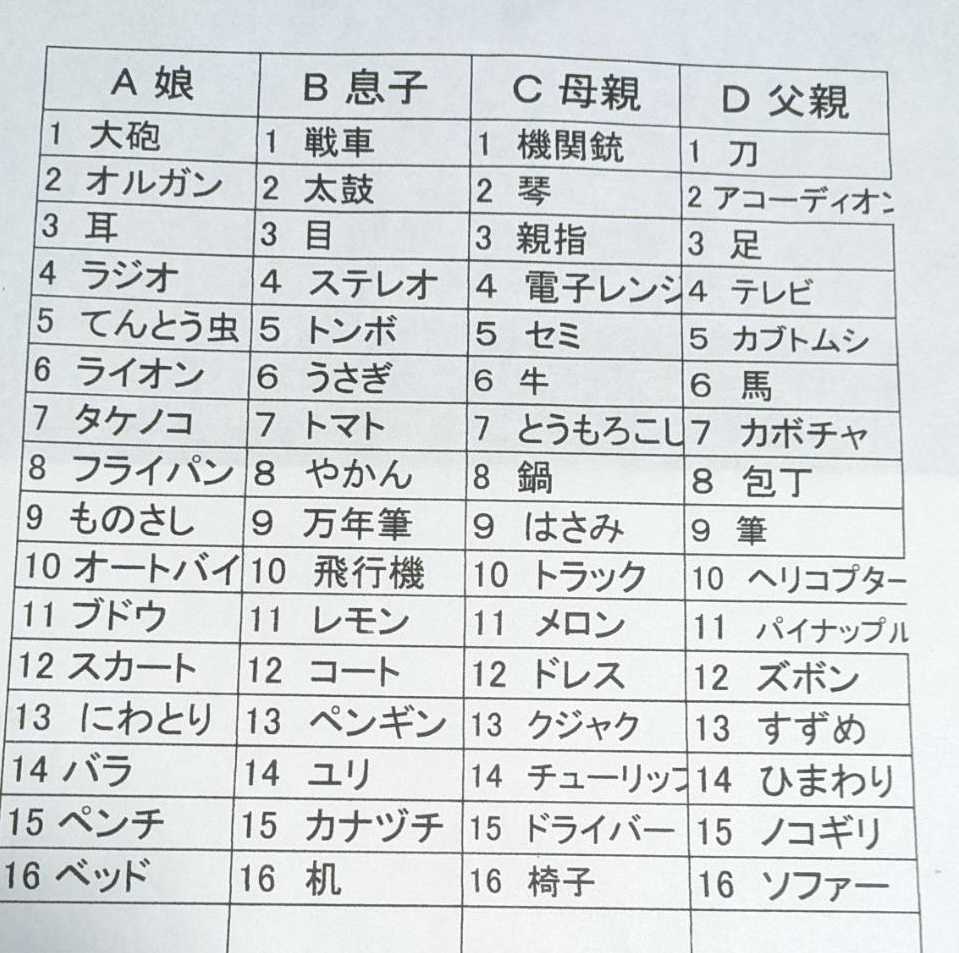 A 娘 B 息子 C 母親 D 父親
1 大砲 1 戦車 1 機関銃 1 刀
2 オルガン 2 太鼓 2 琴 2 アコーディオン
3 耳 3 目 3 親指 3 足
4 ラジオ 4 ステレオ 4 電子レンジ 4 テレビ
5 てんとう虫 5 トンボ 5 セミ 5 カブトムシ
6 ライオン 6 うさぎ 6 牛 6 馬
7 タケノコ 7 トマト 7 とうもろこし 7 カボチャ
8 フライパン 8 やかん 8 鍋 8 包丁
9 ものさし 9 万年筆 9 はさみ 9 筆
10 オートバイ 10 飛行機 10 トラック 10 ヘリコプター
11 ブドウ 11 レモン 11 メロン 11 パイナップル
12 スカート 12 コート 12 ドレス 12 ズボン
13 にわとり 13 ペンギン 13 クジャク 13 すずめ
14 バラ 14 ユリ 14 チューリップ 14 ひまわり
15 ペンチ 15 カナヅチ 15 ドライバー 15 ノコギリ
16 ベッド 16 机 16 椅子 16 ソファー